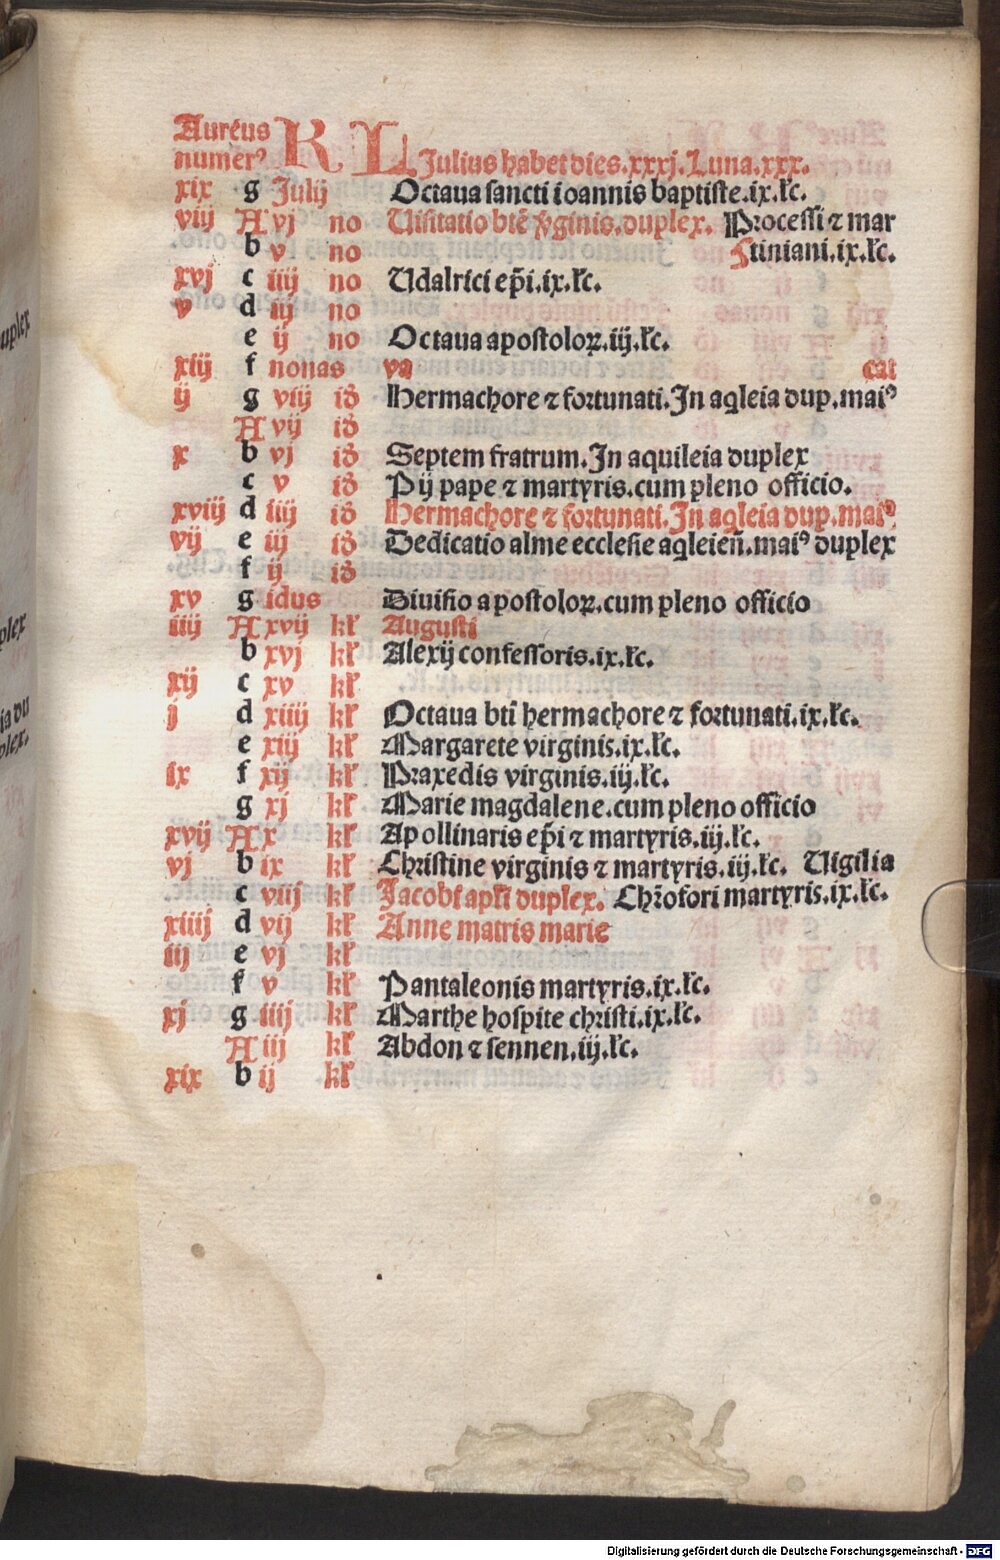 Aureus
numerꝰ KL Julius habet dies.xxxj.Luna.xxx.
xix g Julij Octaua sancti ioannis baptiste.ix.łc.
viij A vj no Uisitatio btē v̄ginis.duplex. Processi ⁊ mar
b v no tiniani.ix.łc.
xvj c iiij no Udalrici ep̄i.ix.łc.
v d iij no
e ij no Octaua apostoloꝝ.iij.łc.
xiij f nonas va cat
ij g viij id̄ Hermachore ⁊ fortunati.In aqleia dup.maiꝰ
A vij id̄
x b vj id̄ Septem fratrum.In aquileia duplex
c v id̄ Pij pape ⁊ martyris.cum pleno officio.
xviij d iiij id̄ Hermachore ⁊ fortunati.In aqleia dup.maiꝰ
vij e iij id̄ Dedicatio alme ecclesie aqleien̄.maiꝰ duplex
f ij id̄
xv g idus Diuisio apostoloꝝ.cum pleno officio
iiij A xvij kł Augusti
b xvj kł Alexij confessoris.ix.łc.
xij c xv kł
j d xiiij kł Octaua bti hermachore ⁊ fortunati.ix.łc.
e xiij kł Margarete virginis.ix.łc.
ix f xij kł Praxedis virginis.iij.łc.
g xj kł Marie magdalene.cum pleno officio
xvij A x kł Apollinaris ep̄i ⁊ martyris.iij.łc.
vj b ix kł Christine virginis ⁊ martyris.iij.łc. Uigilia
c viij kł Jacobi apłi duplex. Chr̄ofori martyris.ix.łc.
xiiij d vij kł Anne matris marie
iij e vj kł
f v kł Pantaleonis martyris.ix.łc.
xj g iiij kł Marthe hospite christi.ix.łc.
A iij kł Abdon ⁊ sennen.iij.łc.
xix b ij kł
Digitalisierung gefördert durch die Deutsche Forschungsgemeinschaft - DFG